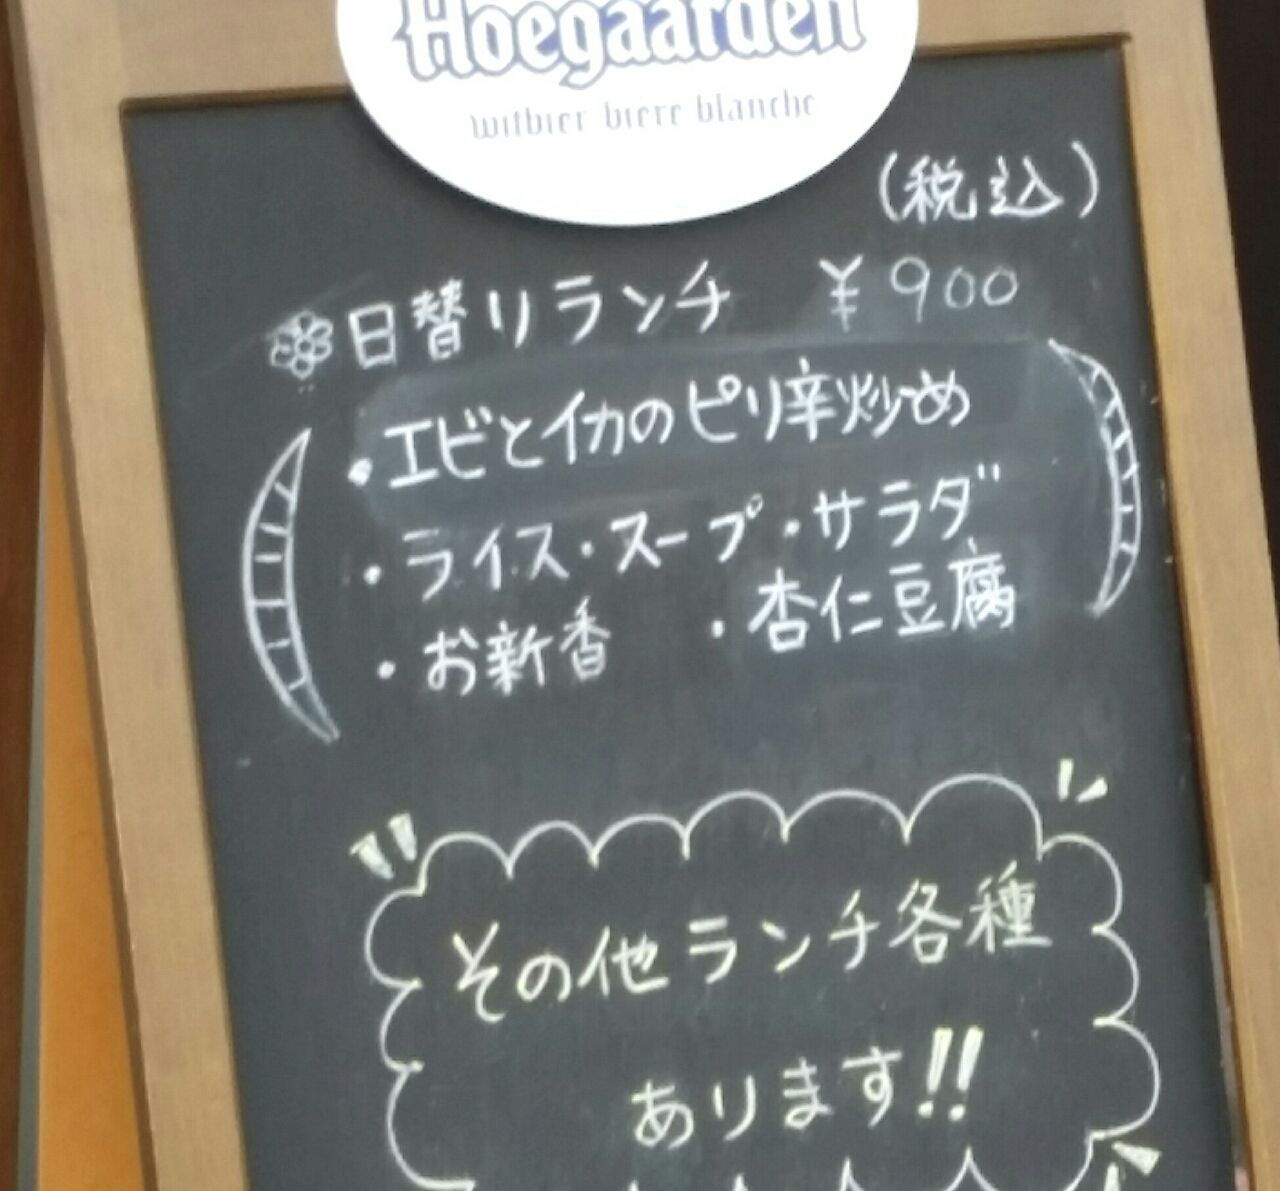 Hoegaarden
witbier biere blanche
(税込)
日替りランチ ¥900
・エビとイカのピリ辛炒め
・ライス・スープ・サラダ
・お新香 ・杏仁豆腐
その他ランチ各種
あります!!